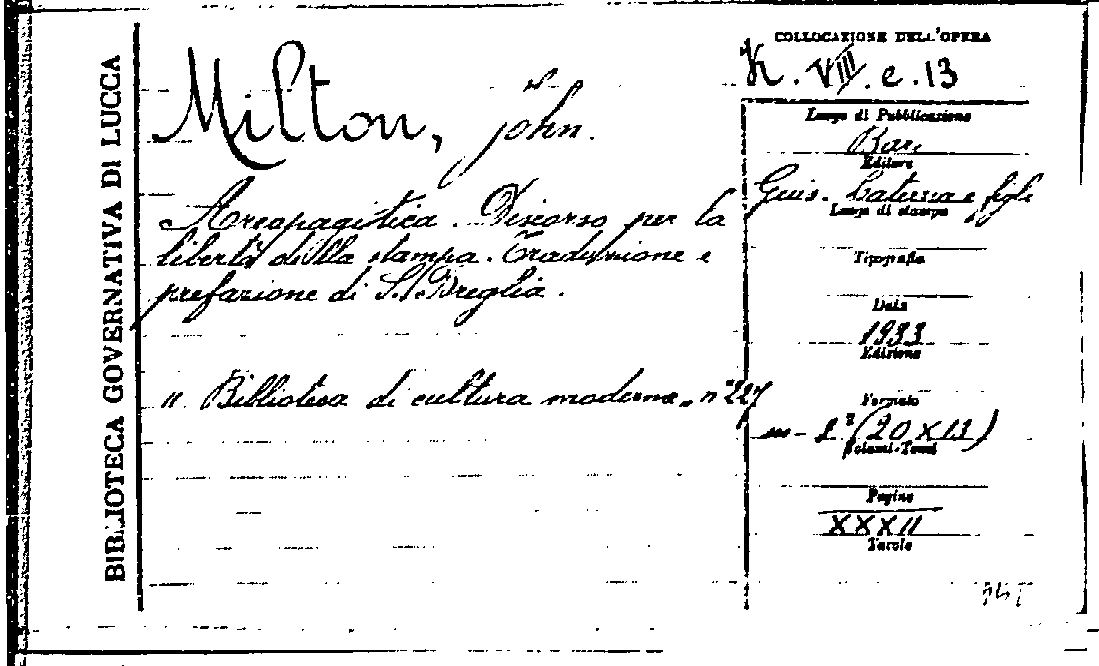 BIBLIOTECA GOVERNATIVA DI LUCCA
Milton, John.
Areopagitica. Discorso per la
libertà della stampa. Traduzione e
prefazione di S. Breglia.
" Biblioteca di cultura moderna " n° 227
COLLOCAZIONE DELL'OPERA
K. VIII. e. 13
Luogo di Pubblicazione
Bari
Editore
Gius. Laterza e figli
Luogo di stampa
Tipografia
Data
1933
Edizione
Formato
in-8° (20 X 13)
Volumi-Tomi
Pagine
XXXII
Tavole